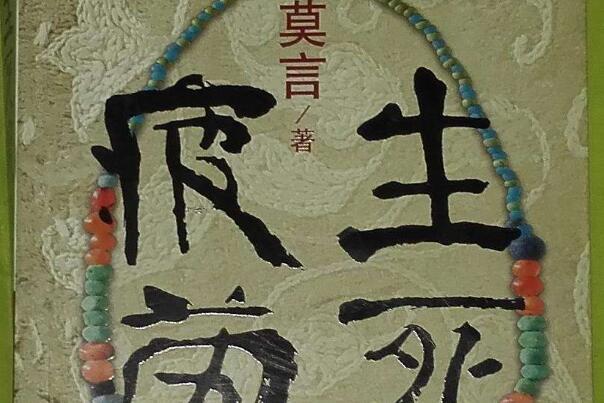 莫言/著
生死
疲劳